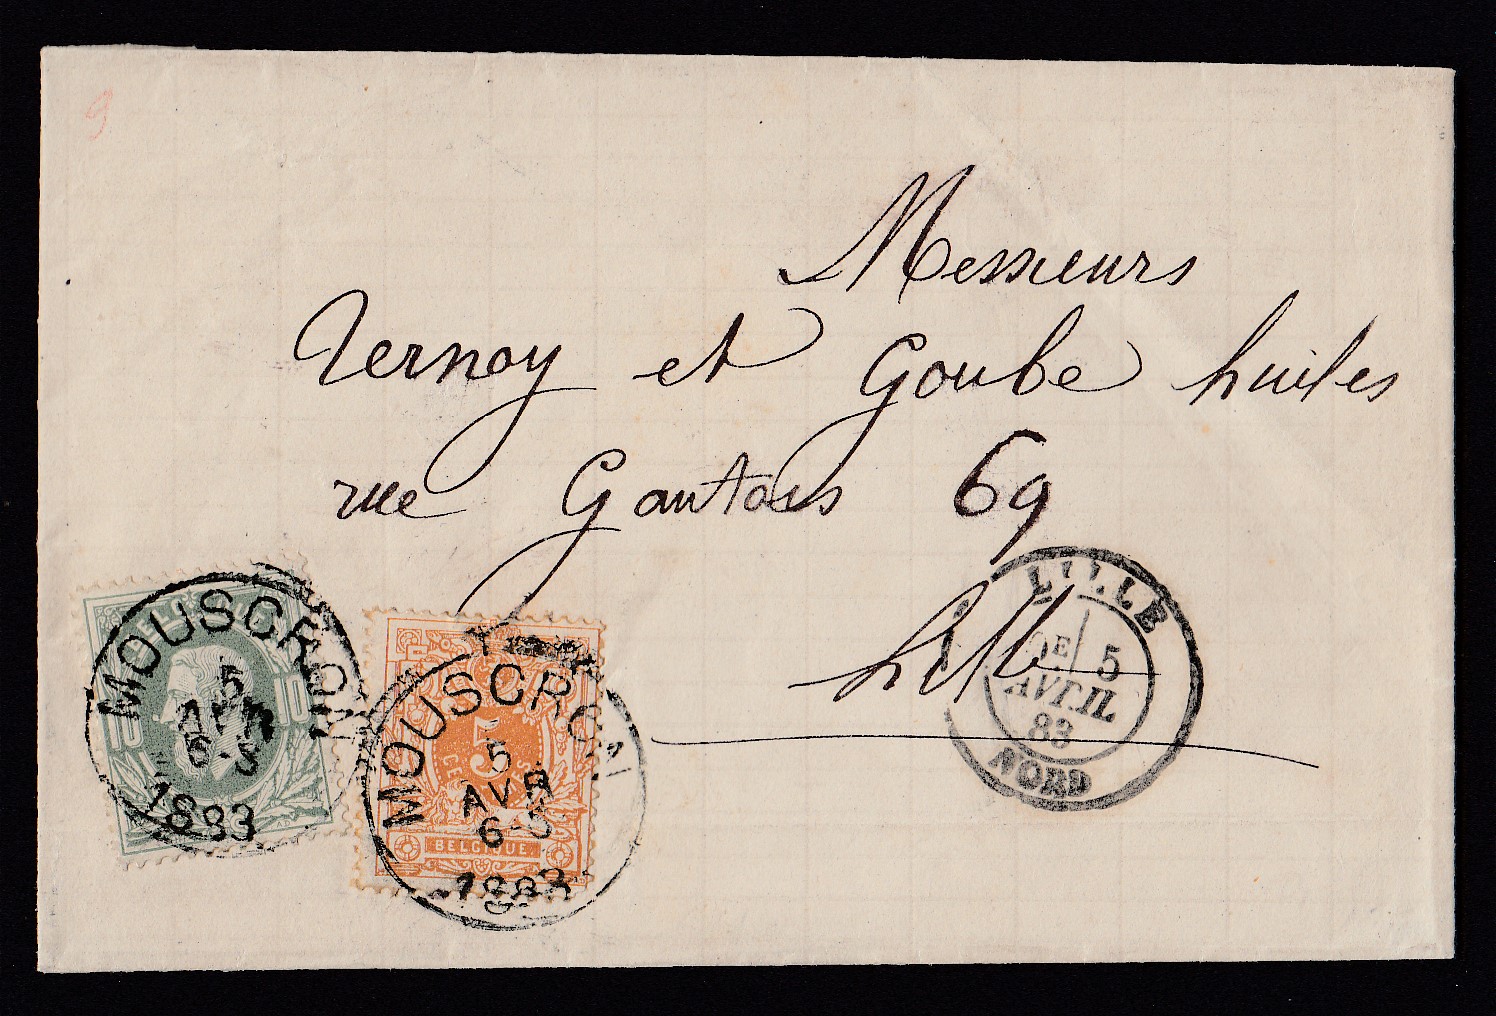 Messieurs
Vernoy et Goube huiles
rue Gantois 69
Lille
LILLE
5
AVRIL
83
NORD
MOUSCRON
5
AVR
6-S
1883
10
10
MOUSCRON
5
AVR
6-S
1883
5
BELGIQUE